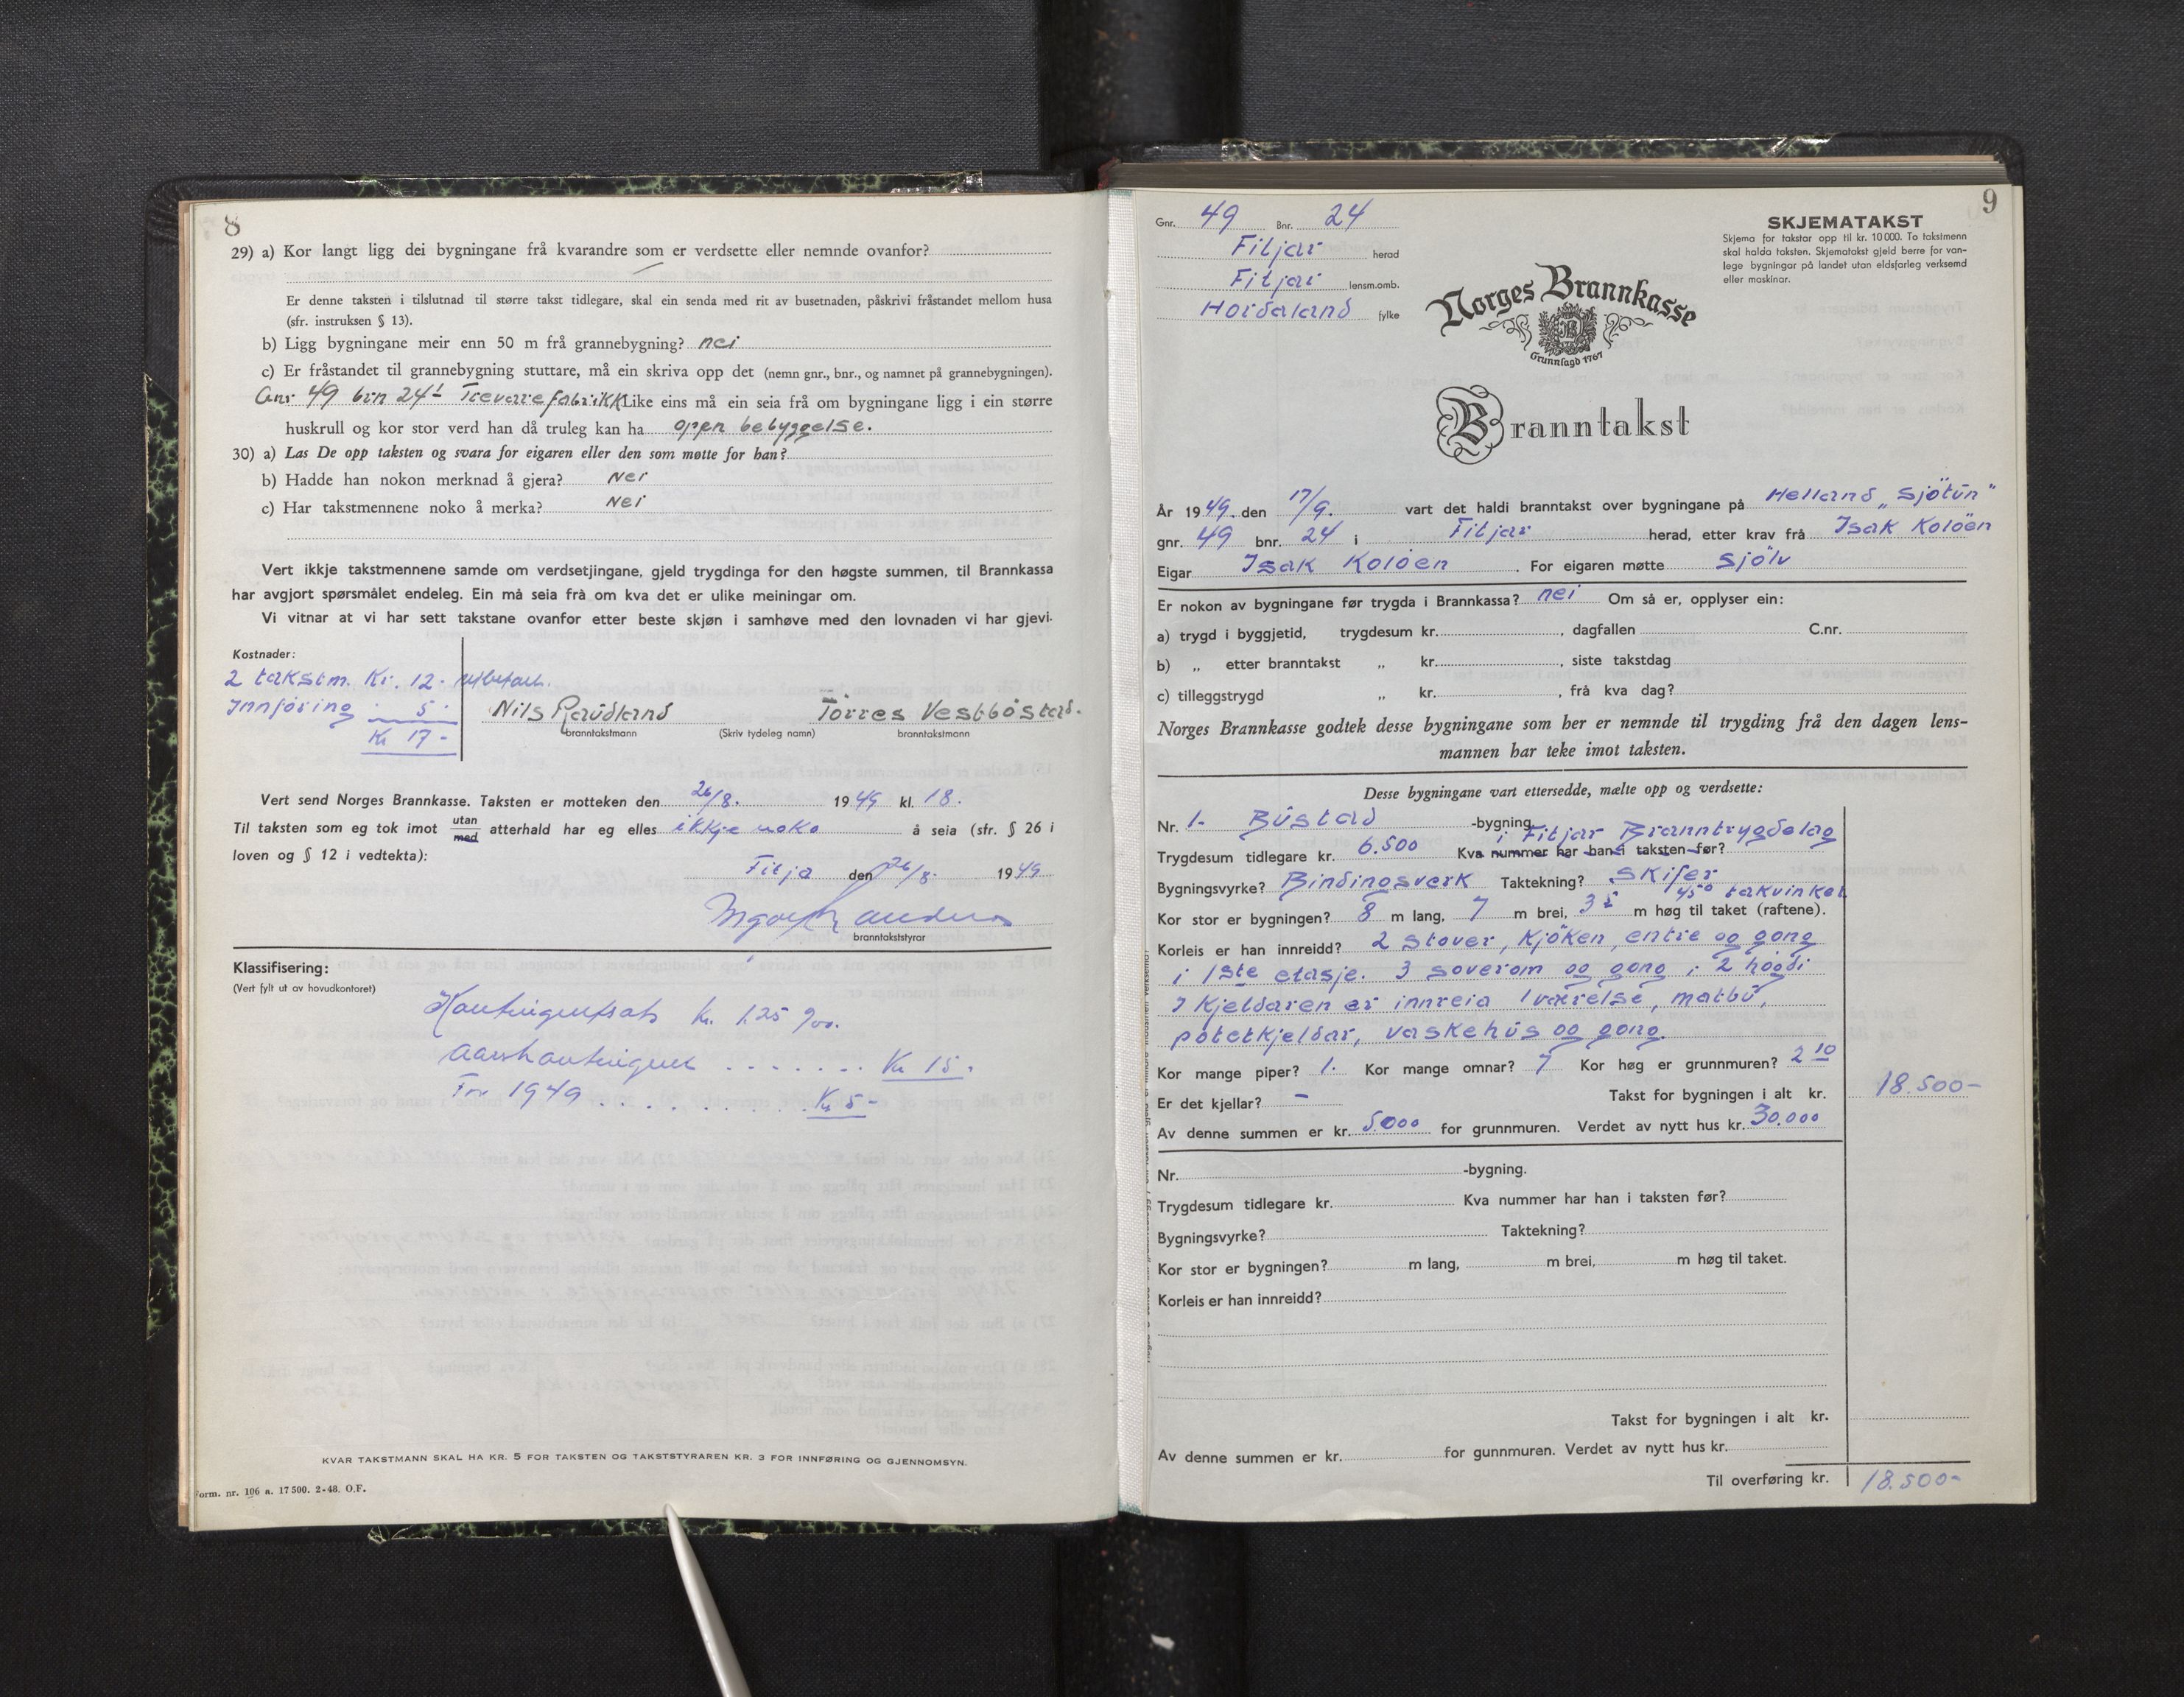 8
29) a) Kor langt ligg dei bygningane frå kvarandre som er verdsette eller nemnde ovanfor?
Er denne taksten i tilslutnad til større takst tidlegare, skal ein senda med rit av busetnaden, påskrivi fråstandet mellom husa
(sfr. instruksen § 13).
b) Ligg bygningane meir enn 50 m frå grannebygning? nei
c) Er fråstandet til grannebygning stuttare, må ein skriva opp det (nemn gnr., bnr., og namnet på grannebygningen).
Gnr 49 brn 24 Trevarefabrikk Like eins må ein seia frå om bygningane ligg i ein større
huskrull og kor stor verd han då truleg kan ha open bebyggelse.
30) a) Las De opp taksten og svara for eigaren eller den som møtte for han?
b) Hadde han nokon merknad å gjera? Nei
c) Har takstmennene noko å merka? Nei
Vert ikkje takstmennene samde om verdsetjingane, gjeld trygdinga for den høgste summen, til Brannkassa
har avgjort spørsmålet endeleg. Ein må seia frå om kva det er ulike meiningar om.
Vi vitnar at vi har sett takstane ovanfor etter beste skjøn i samhøve med den lovnaden vi har gjevi.
Kostnader:
2 takstm. Kr. 12.- utbetalt.
Innføring " 5 -
Kr 17-
Nils Raudland Torres Vestbøstad.
branntakstmann (Skriv tydeleg namn) branntakstmann
Vert send Norges Brannkasse. Taksten er motteken den 26/8. 1949 kl. 18.
Til taksten som eg tok imot utan med atterhald har eg elles ikkje noko å seia (sfr. § 26 i
loven og § 12 i vedtekta):
Fitja den 26/8. 1949
branntakststyrar
Klassifisering:
(Vert fylt ut av hovudkontoret)
Kontingentsats kr. 1.25 ‰.
Aarskontingent ....... Kr 15.
For 1949 .......... Kr 5-
KVAR TAKSTMANN SKAL HA KR. 5 FOR TAKSTEN OG TAKSTSTYRAREN KR. 3 FOR INNFØRING OG GJENNOMSYN.
Form. nr. 106 a. 17500. 2-48. O.F.
9
Gnr. 49 Bnr. 24
Fitjar herad
Fitjar lensm.omb.
Hordaland fylke
SKJEMATAKST
Skjema for takstar opp til kr. 10000. To takstmenn
skal halda taksten. Skjematakst gjeld berre for van-
lege bygningar på landet utan eldsfarleg verksemd
eller maskinar.
Norges Brannkasse
Grunnlagd 1767
Branntakst
År 1949. den 17/9. vart det haldi branntakst over bygningane på Helland „Sjøtun"
gnr. 49 bnr. 24 i Fitjar herad, etter krav frå Isak Koløen
Eigar Isak Koløen. For eigaren møtte sjølv
Er nokon av bygningane før trygda i Brannkassa? nei Om så er, opplyser ein:
a) trygd i byggjetid, trygdesum kr. , dagfallen C.nr.
b) „ etter branntakst „ kr. , siste takstdag
c) tilleggstrygd „ kr. , frå kva dag?
Norges Brannkasse godtek desse bygningane som her er nemnde til trygding frå den dagen lens-
mannen har teke imot taksten.
Desse bygningane vart ettersedde, mælte opp og verdsette:
Nr. 1. Bustad -bygning
i Fitjar Branntrygdelag
Trygdesum tidlegare kr. 6.500 Kva nummer har han i taksten før?
Bygningsvyrke? Bindingsverk Taktekning? Skifer
45° takvinkel
Kor stor er bygningen? 8 m lang, 7 m brei, 3 5 m høg til taket (raftene).
Korleis er han innreidd? 2 stover, kjøken, entre og gong
i 1ste etasje. 3 soverom og gong i 2 høgdi
I kjeldaren er innreia 1 værelse, matbu,
potetkjeldar, vaskehus og gong.
Kor mange piper? 1. Kor mange omnar? 7 Kor høg er grunnmuren? 2 10
Er det kjellar? - Takst for bygningen i alt kr. 18.500-
Av denne summen er kr. 5000 for grunnmuren. Verdet av nytt hus kr. 30.000
Nr. -bygning.
Trygdesum tidlegare kr. Kva nummer har han i taksten før?
Bygningsvyrke? Taktekning?
Kor stor er bygningen? m lang, m brei, m høg til taket.
Korleis er han innreidd?
Takst for bygningen i alt kr.
Av denne summen er kr. for gunnmuren. Verdet av nytt hus kr.
Til overføring kr. 18.500-